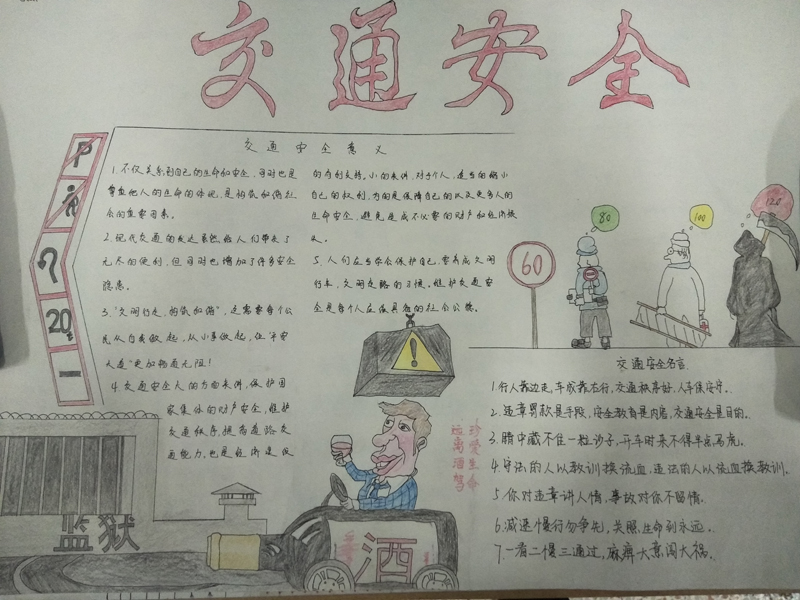 交通安全
交通安全意义
1.不仅关系到自己的生命和安全,同时也是
尊重他人的生命的体现,是构筑和谐社
会的重要因素。
2.现代交通的发达虽然给人们带来了
无尽的便利,但同时也增加了许多安全
隐患。
3."文明行走,构筑和谐",还需要每个公
民从自我做起,从小事做起,让"平安
大道"更加畅通无阻!
4.交通安全
家集体的财产安全,维护
交通秩序,提高道路交
通能力,也是经济建设
的有利支持。小的来件,对于个人,适当的缩小
自己的权利,为的是保障自己的以及更多人的
生命安全,避免造成不必要的财产和经济损
失。
5.人们应当学会保护自己,要养成文明
行车,文明走路的习惯。维护交通安
全是每个人应该具备的社会公德。
P
20
60
80
100
120
交通安全名言
1.行人靠边走,车成靠右行,交通秩序好,人车保安宁。
2.违章罚款是手段,安全教育是内容,交通安全是目的。
3.睛中藏不住一粒沙子,开车时来不得半点马虎。
4.守法的人以教训换流血,违法的人以流血换教训。
5.你对违章讲人情,事故对你不留情。
6.减速慢行勿争先,关照生命到永远。
7.一看二慢三通过,麻痹大意闯大祸。
珍爱生命
远离酒驾
监狱
酒